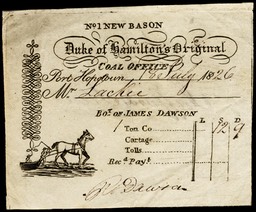 No1 NEW BASON
Duke of Hamilton's Original
COAL OFFICE
Port Hopetoun 18 July 1826
Mr. Lackie
Bot. of JAMES DAWSON
L S D
1 Ton Co 12 9
Cartage
Tolls
Recd. Payt.
Js Dawson